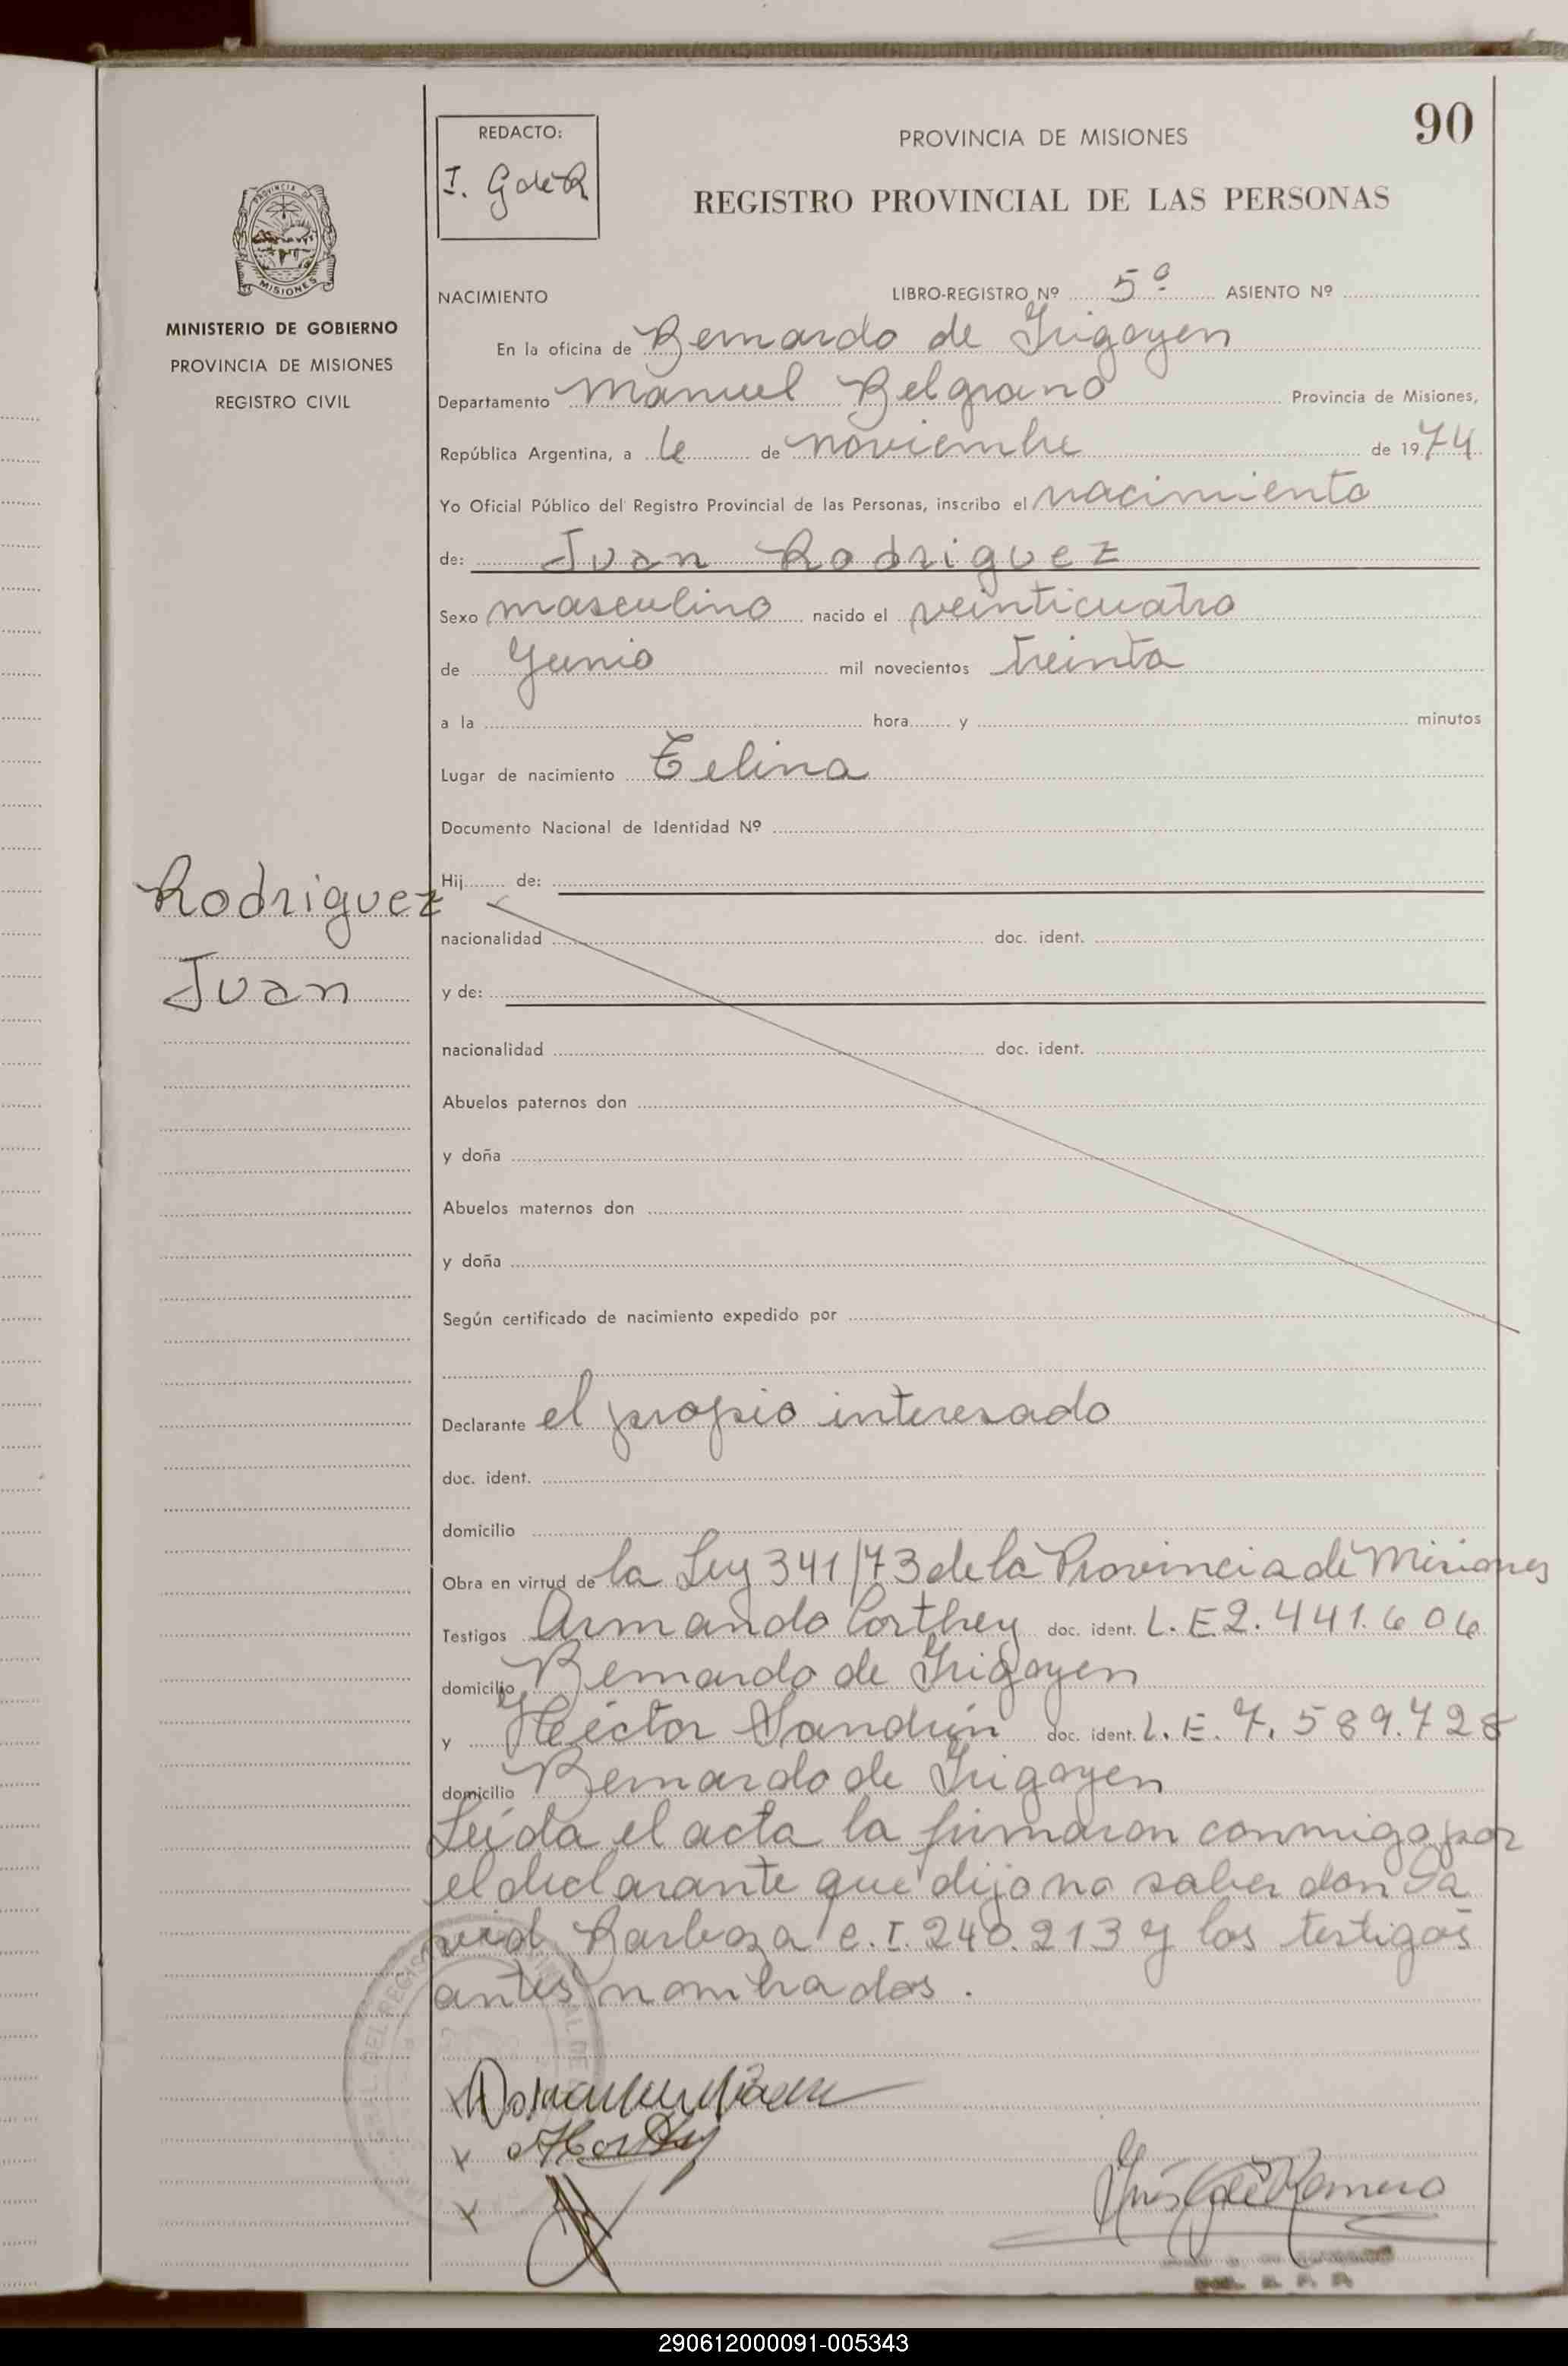 90
REDACTO:
I. G de R
PROVINCIA DE MISIONES
REGISTRO PROVINCIAL DE LAS PERSONAS
PROVINCIA DE
MISIONES
MINISTERIO DE GOBIERNO
PROVINCIA DE MISIONES
REGISTRO CIVIL
NACIMIENTO LIBRO-REGISTRO Nº 5º ASIENTO Nº
En la oficina de Bernardo de Irigoyen
Departamento Manuel Belgrano Provincia de Misiones,
República Argentina, a 6 de noviembre de 1974
Yo Oficial Público del Registro Provincial de las Personas, inscribo el nacimiento
de: Juan Rodriguez
Sexo masculino nacido el veinticuatro
de Junio mil novecientos treinta
a la hora y minutos
Lugar de nacimiento Celina
Documento Nacional de Identidad Nº
Hij de:
Rodriguez
nacionalidad doc. ident.
Juan
y de:
nacionalidad doc. ident.
Abuelos paternos don
y doña
Abuelos maternos don
y doña
Según certificado de nacimiento expedido por
Declarante el propio interesado
doc. ident.
domicilio
Obra en virtud de la Ley 341/73 de la Provincia de Misiones
Testigos Armando Corthey doc. ident. L.E 2.441.606
domicilio Bernardo de Irigoyen
y Héctor Sandrin doc. ident. L.E. 7.589.728
domicilio Bernardo de Irigoyen
Leída el acta la firmaron conmigo por
el declarante que dijo no saber don Da
vid Barboza C.I. 240.213 y los testigos
antes nombrados.
Inés G de Romero
290612000091-005343